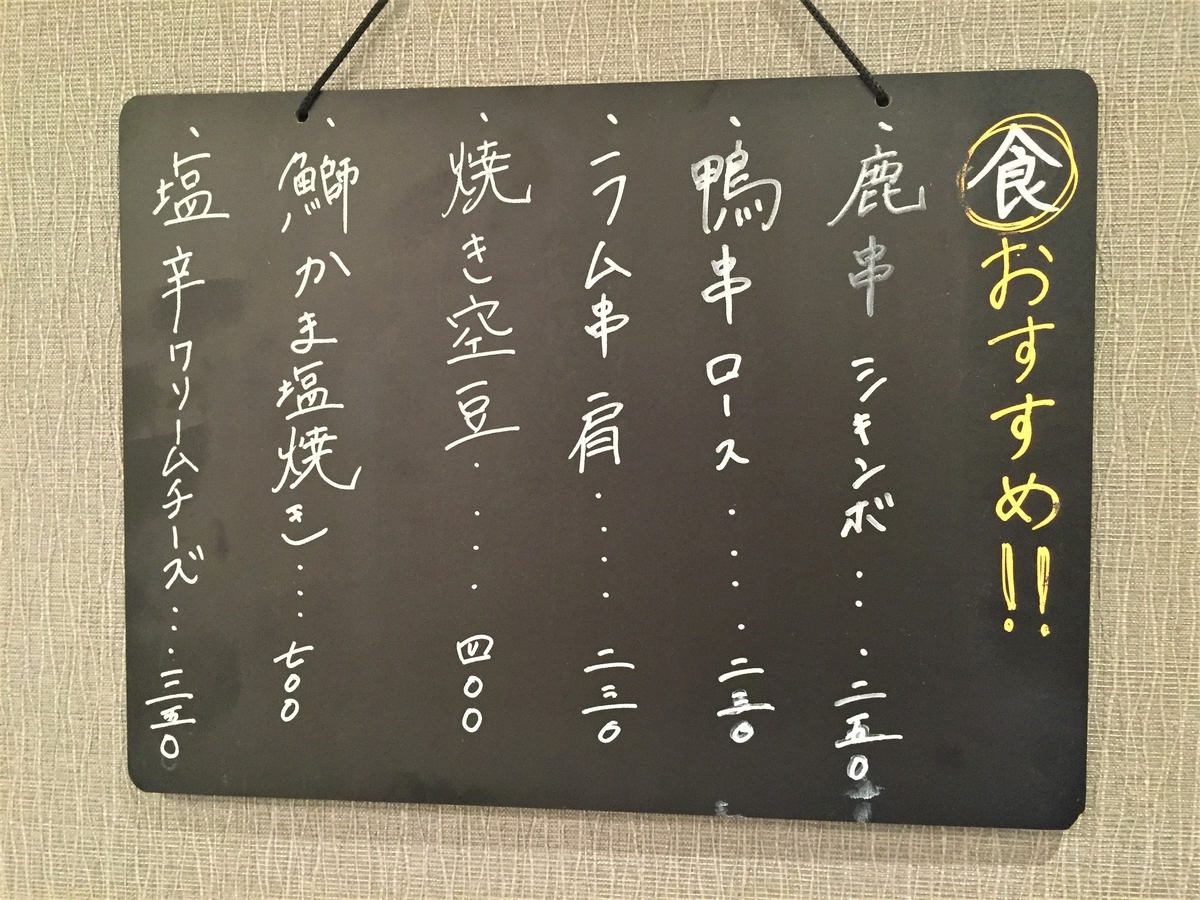 食おすすめ!!
・鹿串 シキンボ...二五〇
・鴨串 ロース....二三〇
・ラム串 肩....二三〇
・焼き空豆....四〇〇
・鰤かま塩焼き...七〇〇
・塩辛クリームチーズ...三五〇